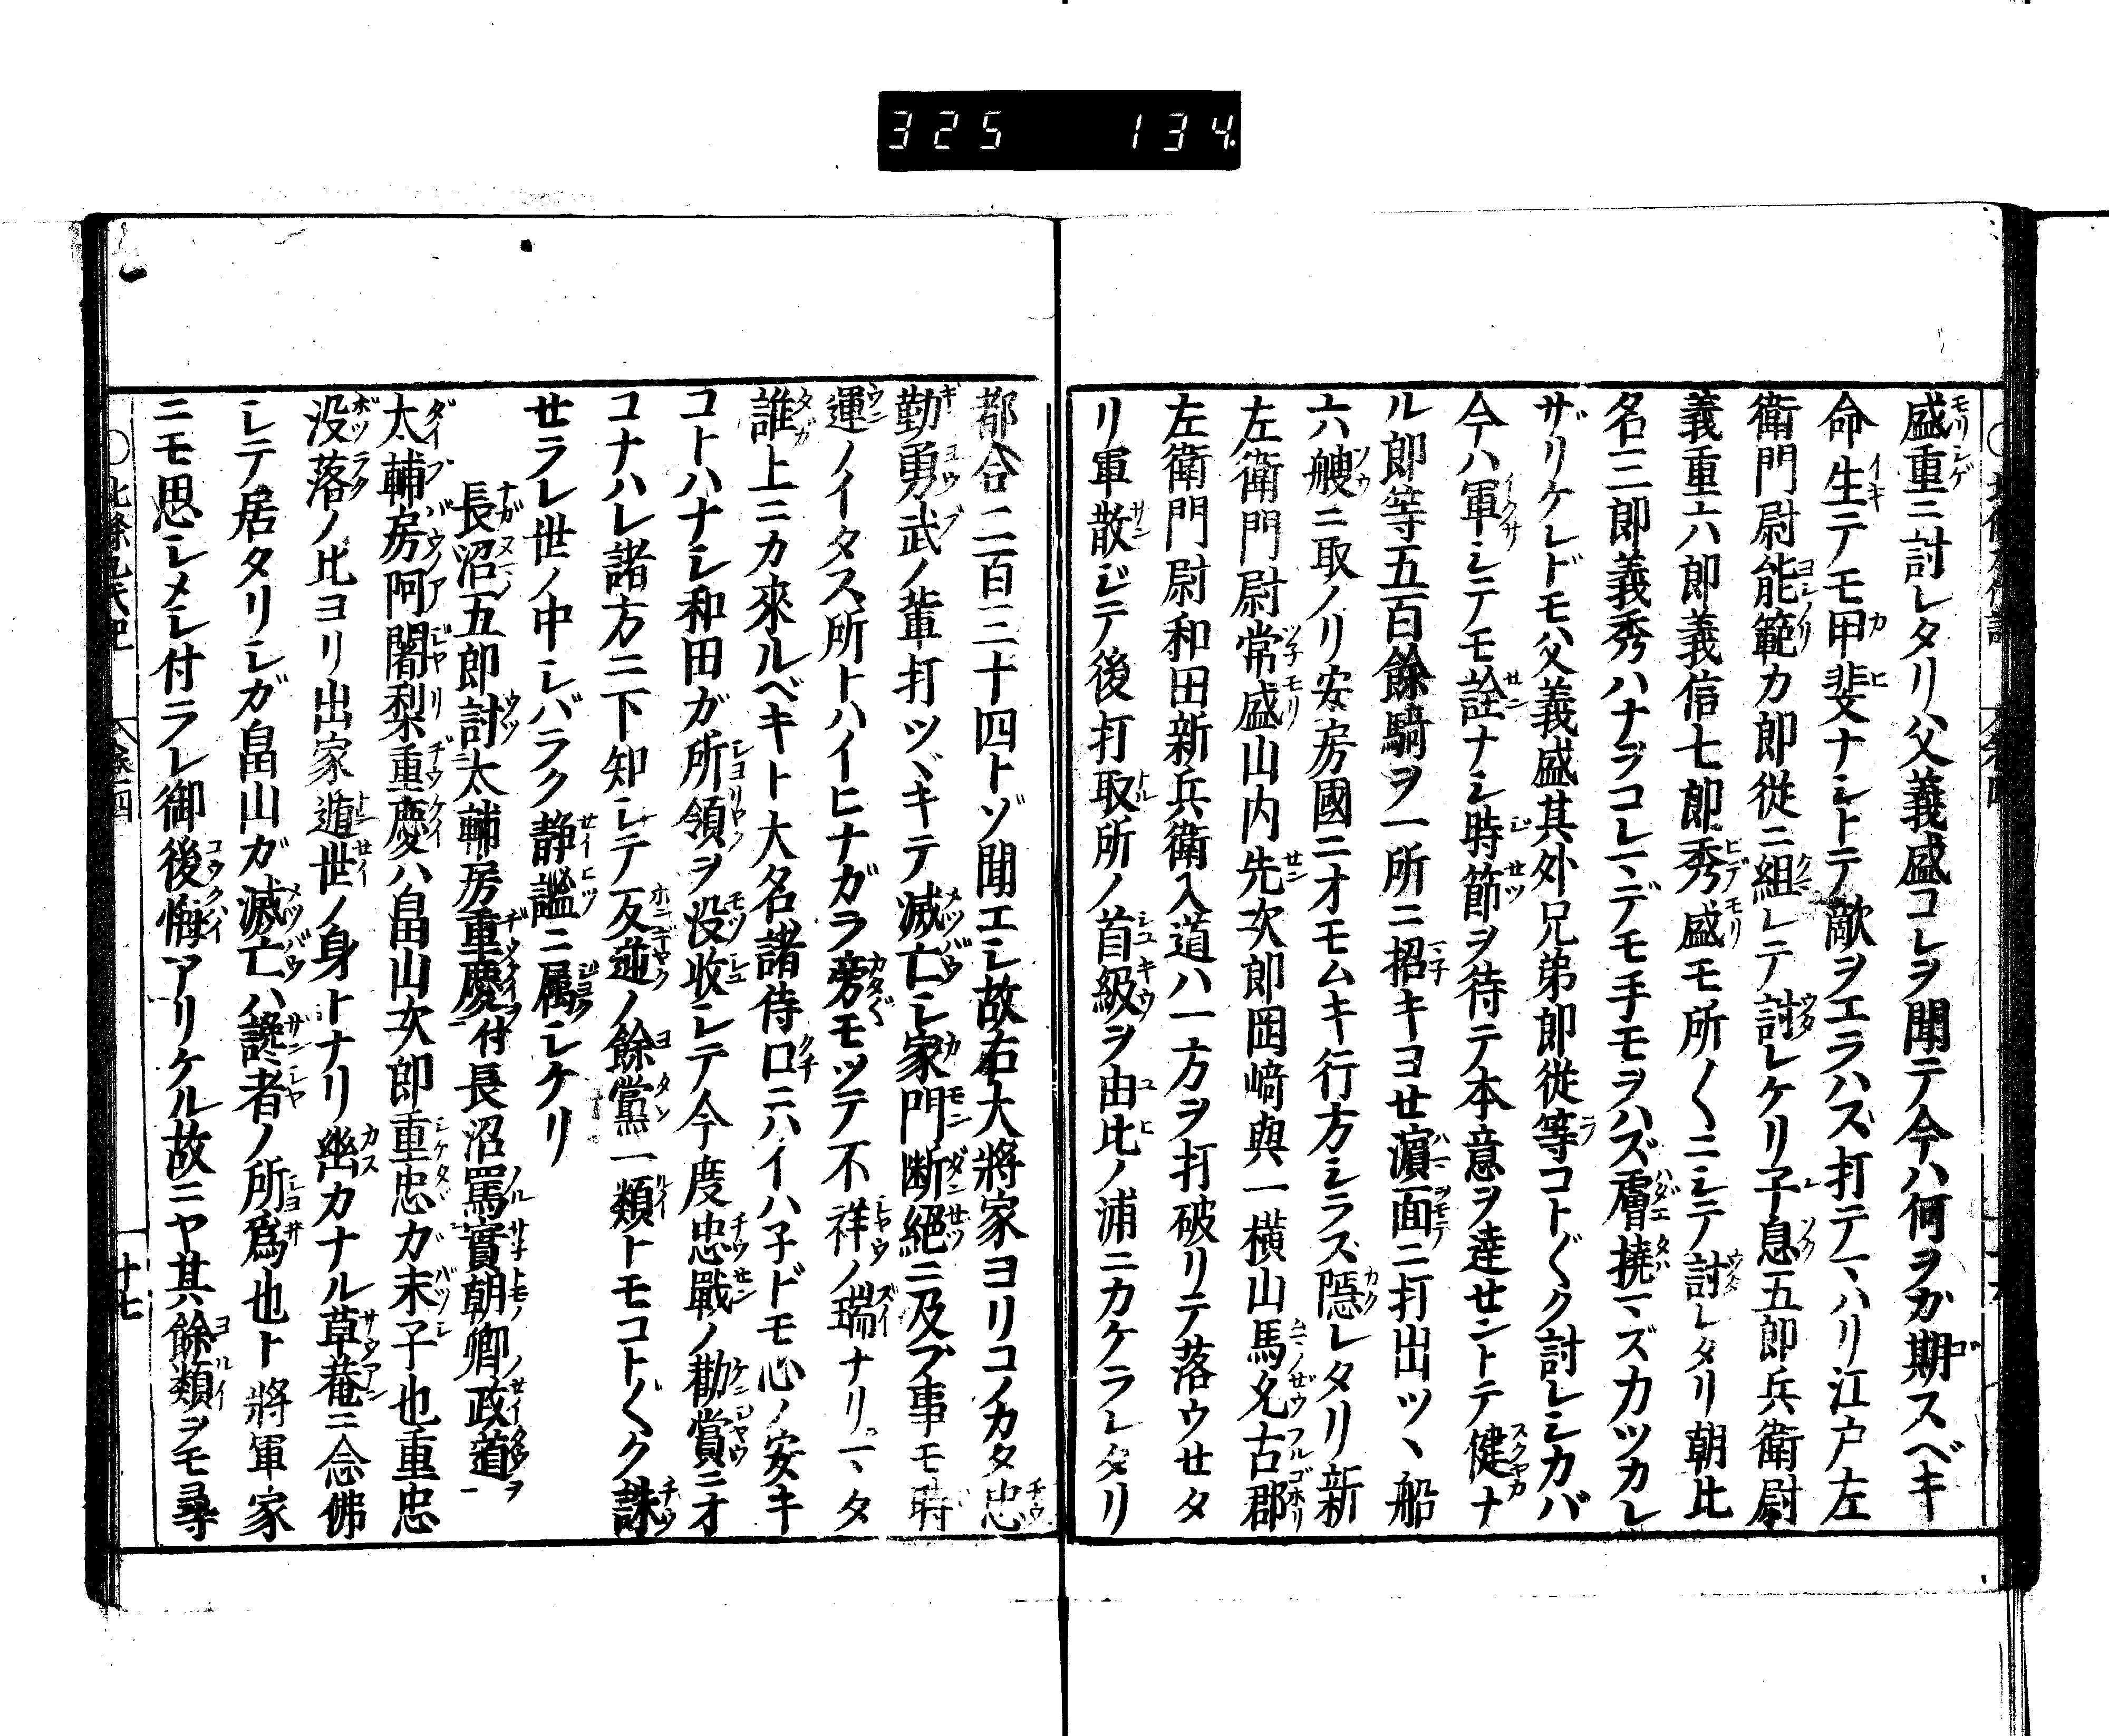 325 134
盛重ニ討レタリ父義盛コレヲ聞テ今ハ何ヲカ期スベキ
命生テモ甲斐ナシトテ敵ヲエラハズ打テマハリ江戸左
衛門尉能範カ郎従ニ組レテ討レケリ子息五郎兵衛尉
義重六郎義信七郎秀盛モ所〳〵ニシテ討レタリ朝比
名三郎義秀ハナラコレマデモ手モヲハズ膚撓マズカツカレ
ザリケレドモ父義盛其外兄弟郎従等コト〴〵ク討レシカバ
今ハ軍シテモ詮ナシ時節ヲ待テ本意ヲ達セントテ健ナ
ル郎等五百餘騎ヲ一所ニ招キヨせ濵面ニ打出ツヽ船
六艘ニ取ノリ安房國ニオモムキ行方シラズ隱レタリ新
左衛門尉常盛山内先次郎岡﨑與一横山馬允古郡
左衛門尉和田新兵衛入道ハ一方ヲ打破リテ落ウせタ
リ軍散ジテ後打取所ノ首級ヲ由比ノ浦ニカケラレタリ
都合二百三十四トゾ聞エシ故右大將家ヨリコノカタ忠
勤勇武ノ輩打ツヾキテ滅亡シ家門断絶ニ及ブ事モ時
運ノイタス所トハイヒナガラ旁モツテ不祥ノ瑞ナリマヽタ
誰上ニカ來ルベキト大名諸侍口ニハイハ子ドモ心ノ安キ
コトハナシ和田ガ所領ヲ没收シテ今度忠戰ノ勸賞ニオ
コナハレ諸方ニ下知シテ反逆ノ餘黨一類トモコト〴〵ク誅
せラレ世ノ中シバラク静謐ニ属シケリ
長沼五郎討太輔房重慶付長沼罵實朝卿政道
太輔房阿闍梨重慶ハ畠山次郎重忠ガ末子也重忠
没落ノ比ヨリ出家遁世ノ身トナリ幽カナル草菴ニ念佛
シテ居タリシガ畠山ガ滅亡ハ讒者ノ所爲也ト將軍家
ニモ思シメシ付ラレ御後悔アリケル故ニヤ其餘類ヲモ尋
○北條九代記 巻四 十七